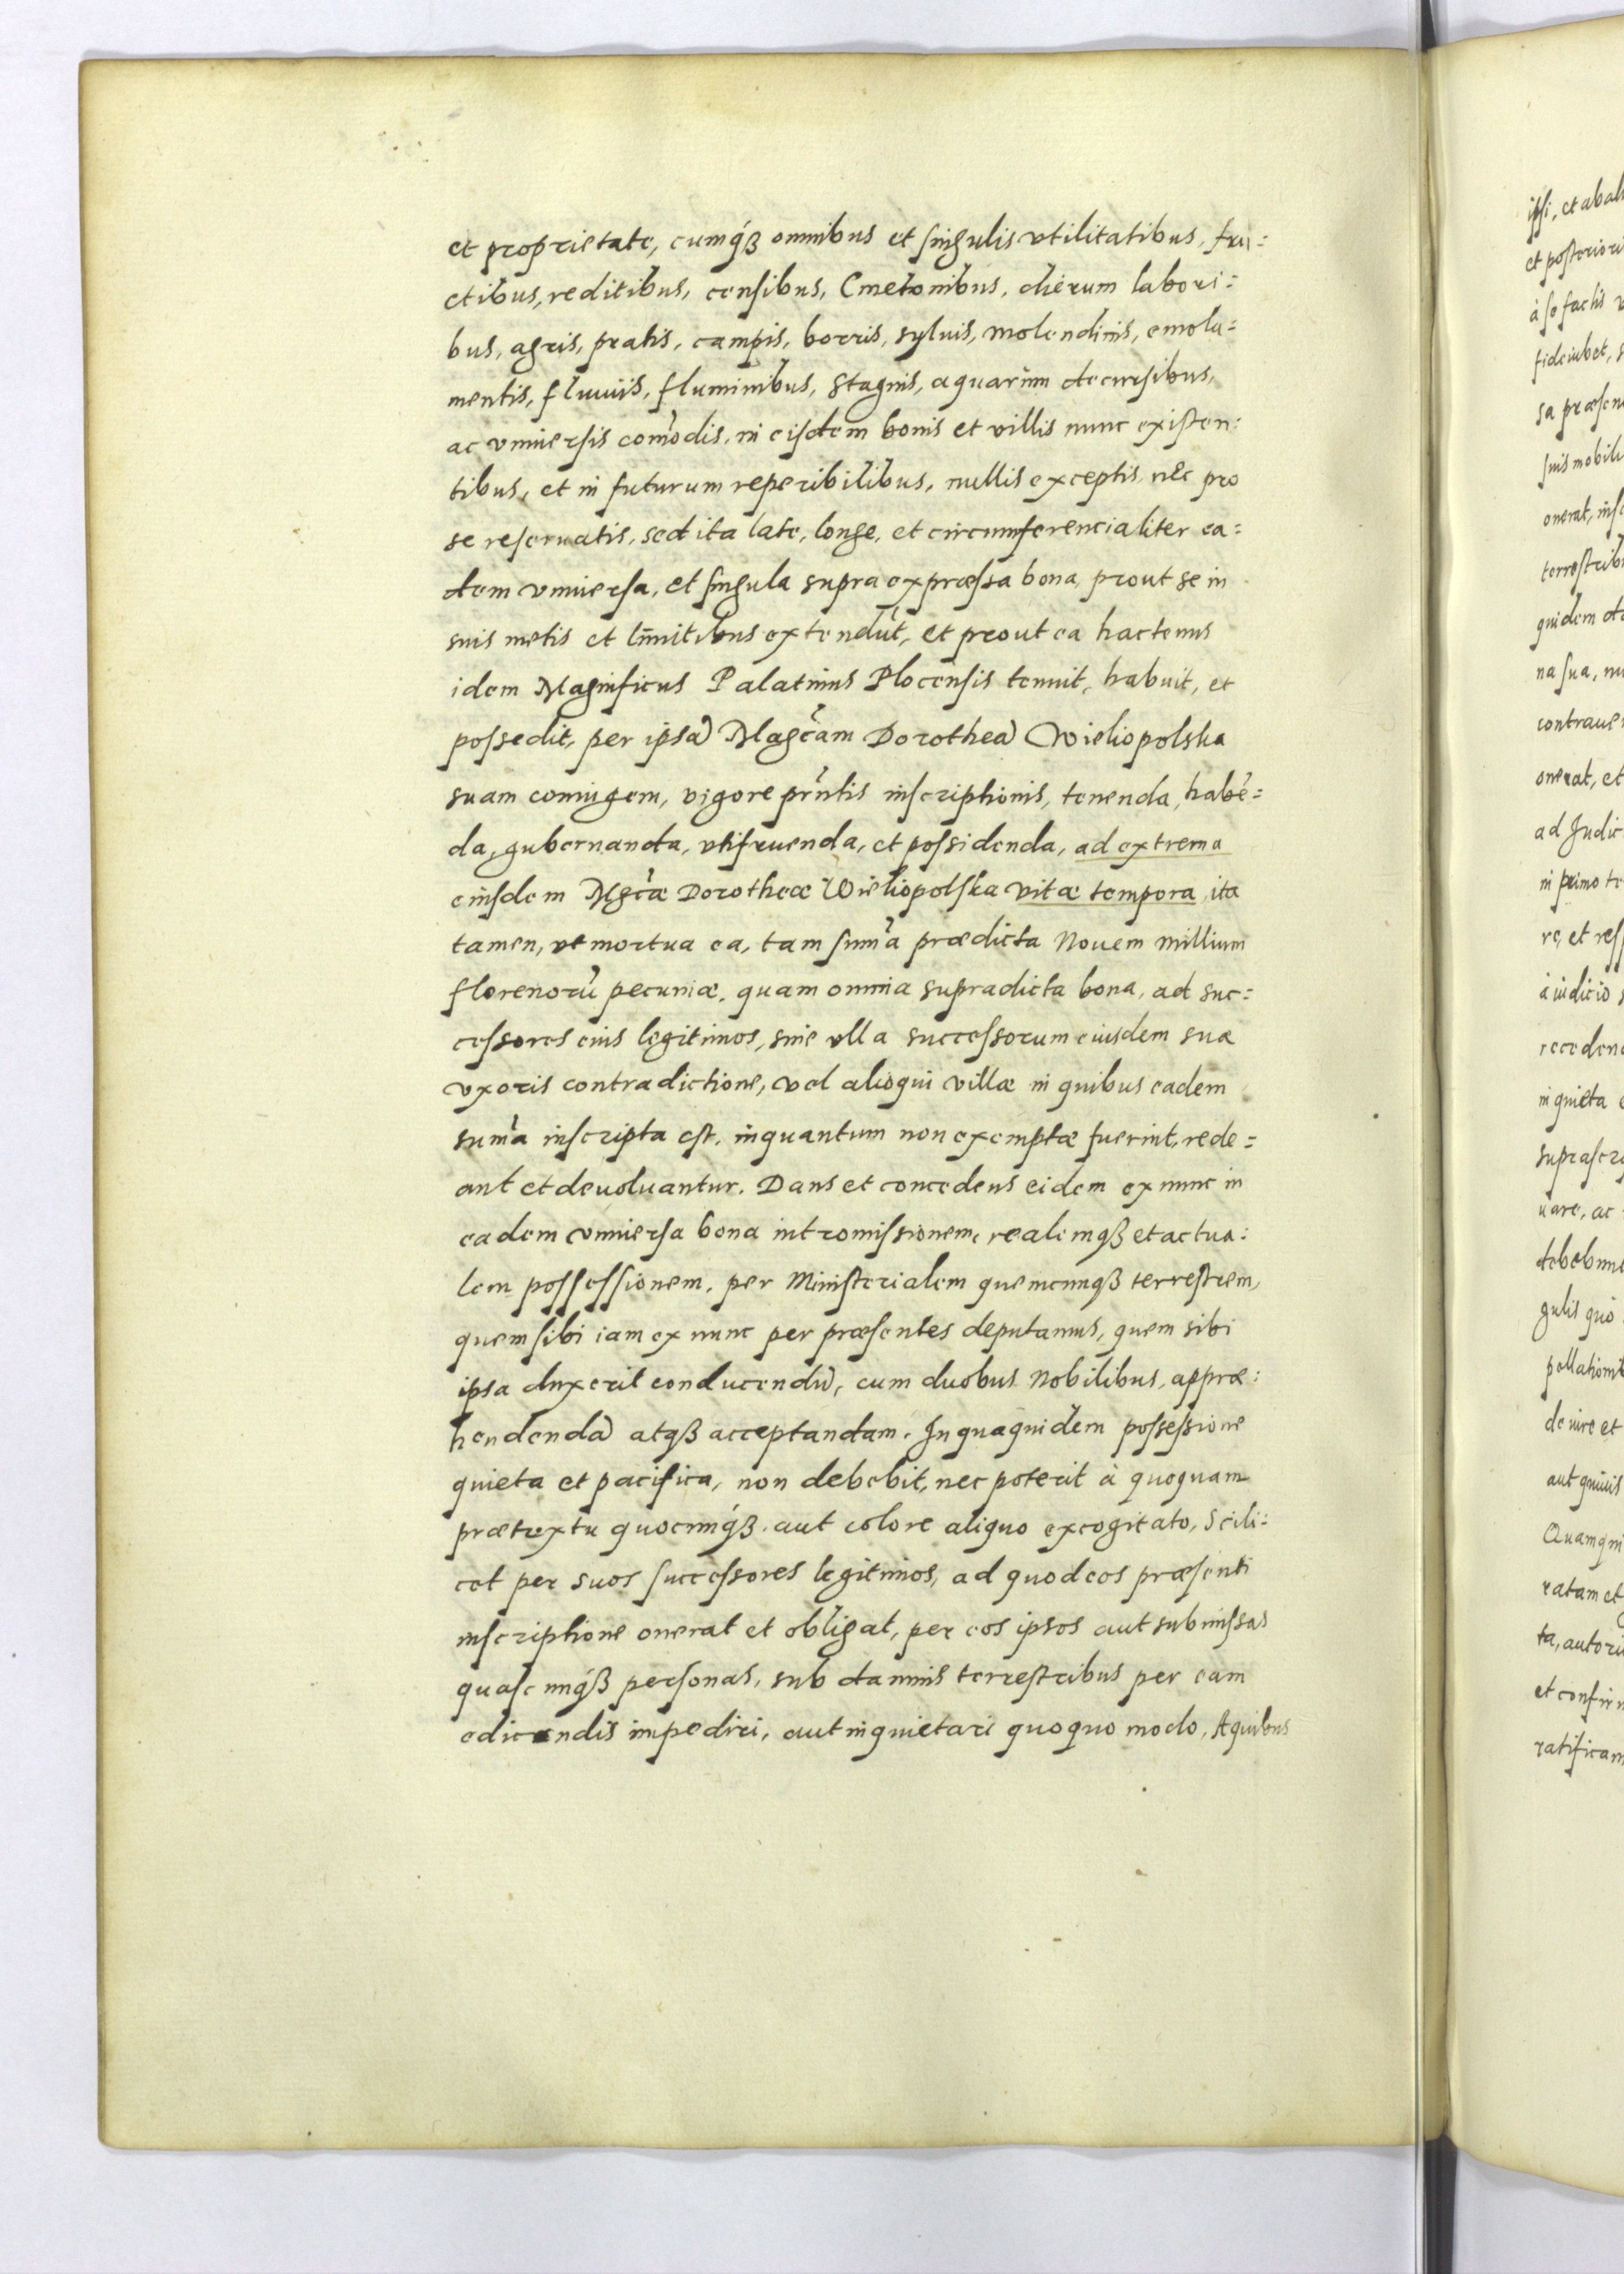 et proprietate, cumq́ꝫ omnibus et singulis vtilitatibus, fru=
ctibus, reditibus, censibus, Cmetonibus, dierum labori=
bus, agris, pratis, campis, borris, syluis, molendinis, emolu=
mentis, fluuiis, fluminibus, stagnis, aquarum decursibus,
ac vniuersis com̃odis, in eisdem bonis et villis nunc existen=
tibus, et in futurum reperibilibus, nullis exceptis nec pro
se reseruatis, sed ita late, longe, et circumferencialiter ea=
dem vniuersa, et singula supra expræssa bona, prout se in
suis metis et limitibus extendũt, et prout ea hactenus
idem Magnificus Palatinus Plocensis tenuit, habuit, et
possedit, per ipsã Magc̃am Dorotheã Wieliopolska
suam coniugem, vigore pr̃ntis inscriptionis, tenenda, habẽ=
da, gubernanda, vtifruenda, et possidenda, ad extrema
eiusdem Mgc̃æ Dorotheæ Wieliopolska vitæ tempora, ita
tamen, vt mortua ea, tam sum̃a prædicta Nouem millium
florenorũ pecuniæ, quam omnia supradicta bona, ad suc=
cessores eius legitimos, sine vlla successorum eiusdem suæ
vxoris contradictione, vel alioqui villæ in quibus eadem
sum̃a inscripta est, inquantum non exemptæ fuerint, rede=
ant et deuoluantur. Dans et concedens eidem ex nunc in
eadem vniuersa bona intromissionem, realemqꝫ et actua=
lem possessionem, per Ministerialem quemcunqꝫ terrestrem,
quem sibi iam ex nunc per præsentes deputamus, quem sibi
ipsa duxerit conducendũ, cum duobus Nobilibus, appræ=
hendendã atqꝫ acceptandam. In quaquidem possessione
quieta et pacifica, non debebit, nec poterit à quoquam
prætextu quocunq́ꝫ aut colore aliquo excogitato, Scili=
cet per suos successores legitimos, ad quod eos præsenti
inscriptione onerat et obligat, per eos ipsos aut submissas
quascunq́ꝫ personas, sub damnis terrestribus per eam
edicendis impediri, aut inquietari quoquo modo, A quibus